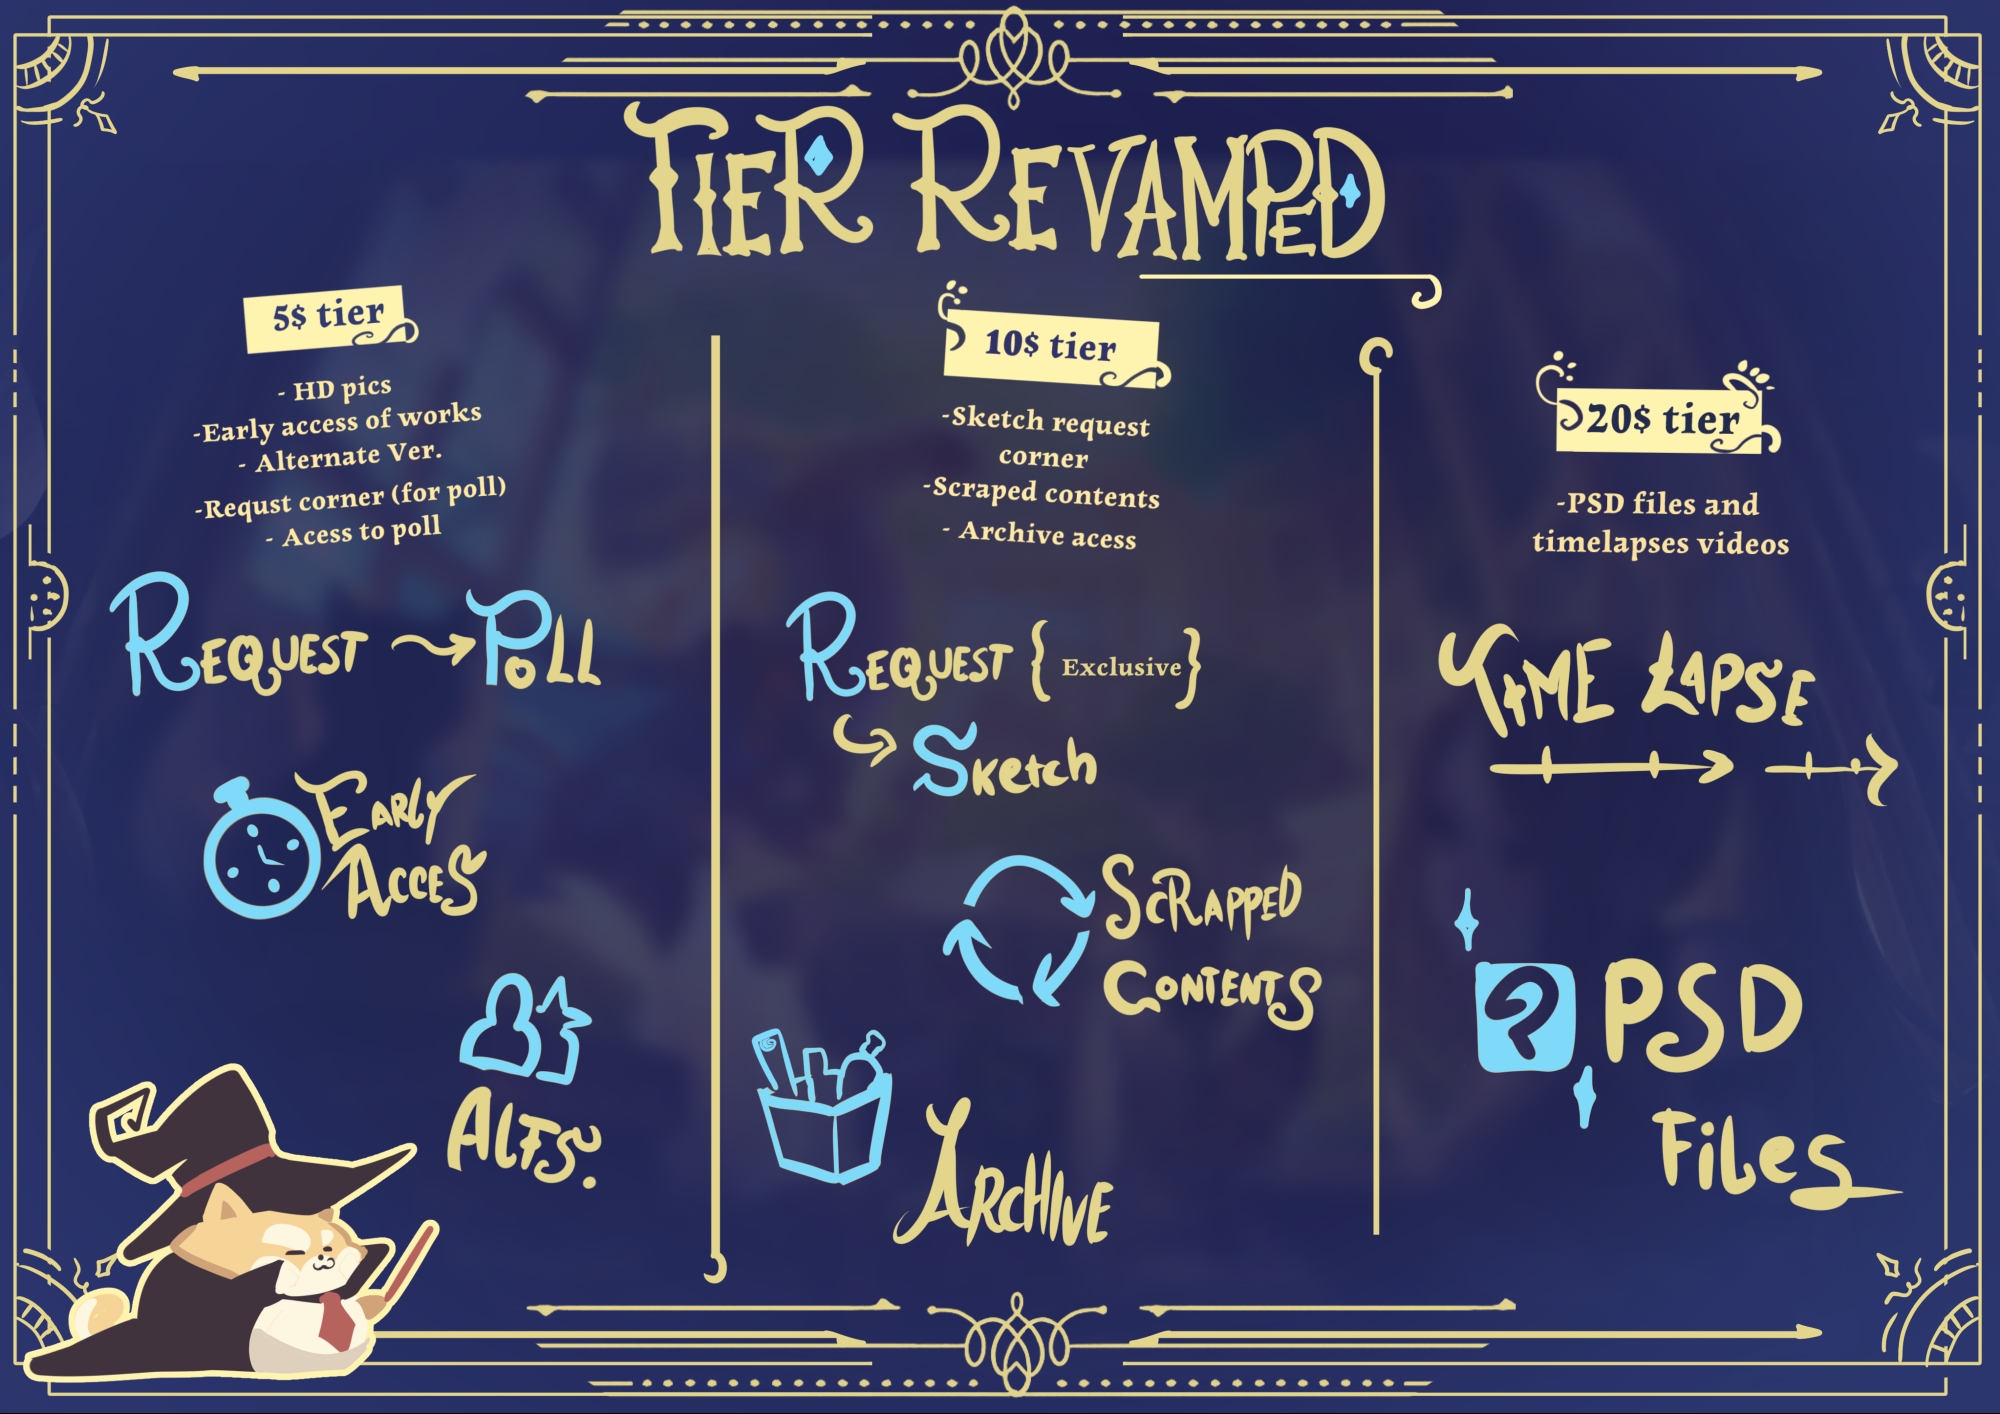 TIER REVAMPED
5$ tier
- HD pics
-Early access of works
- Alternate Ver.
-Requst corner (for poll)
- Acess to poll
REQUEST → POLL
EARLY
ACCES
ALTS.
10$ tier
-Sketch request
corner
-Scraped contents
- Archive acess
REQUEST { Exclusive }
Sketch
SCRAPPED
CONTENTS
ARCHIVE
20$ tier
-PSD files and
timelapses videos
TIME LAPSE
PSD
Files